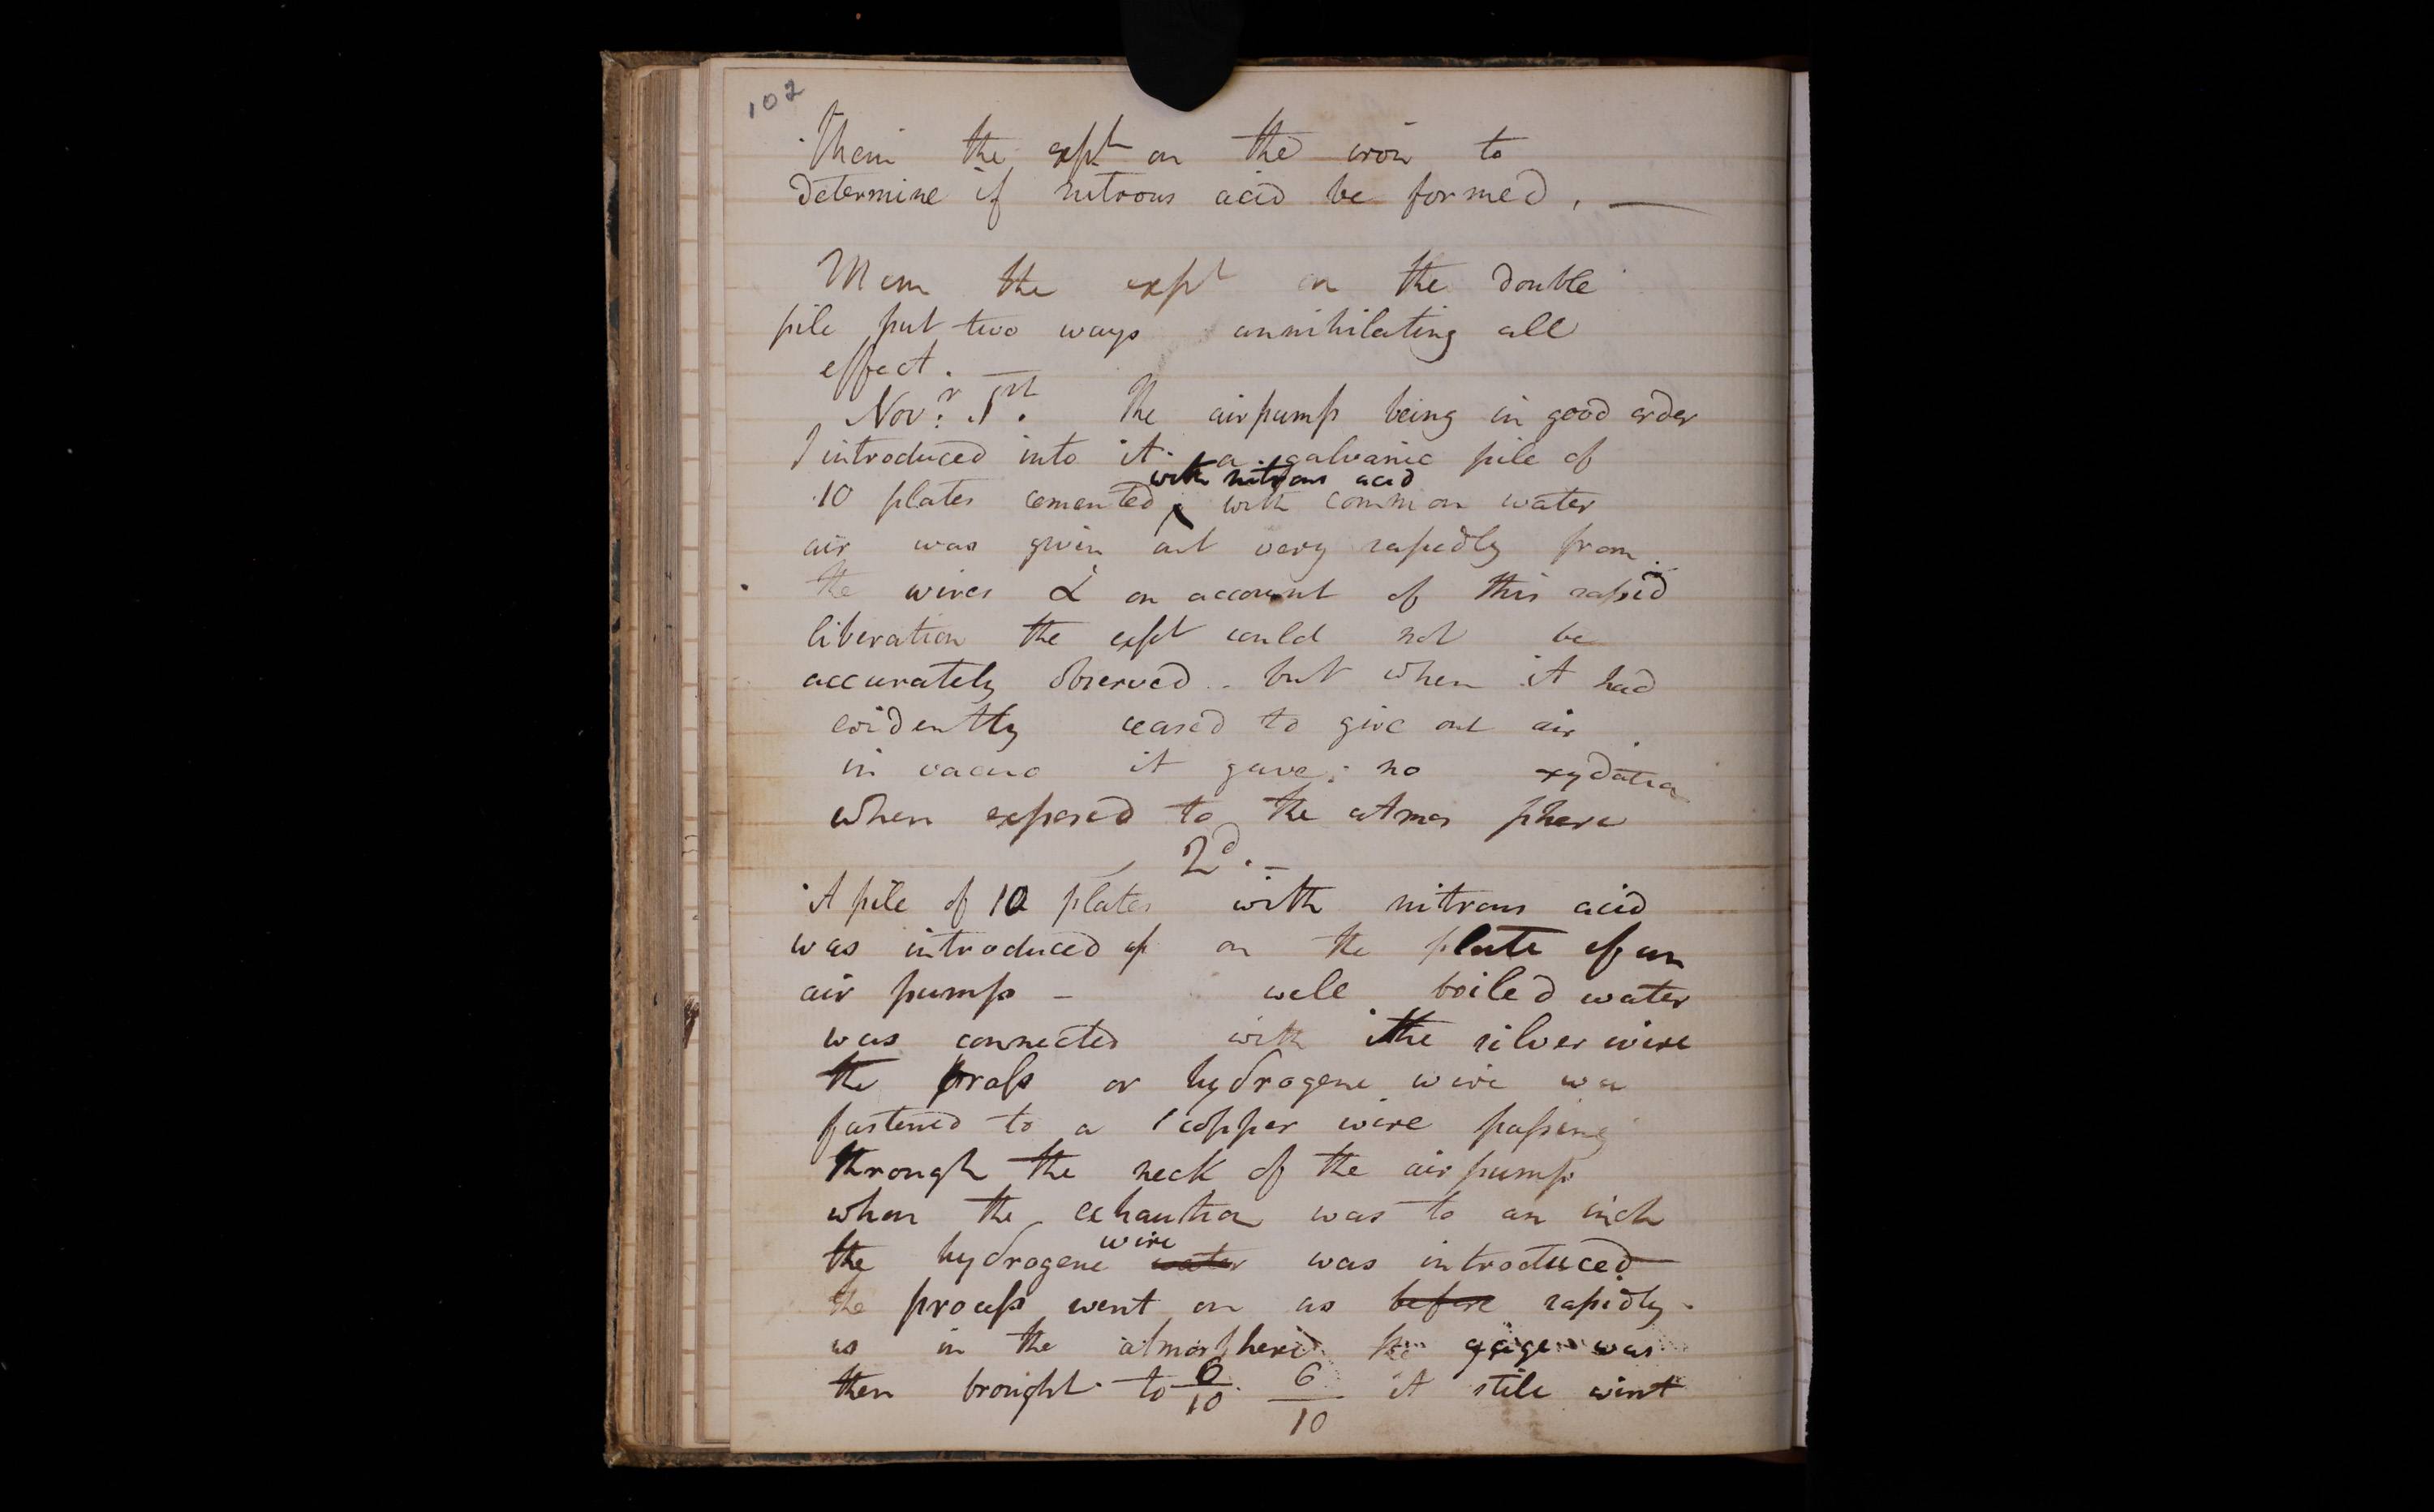 102
Mem the expt on the iron to
determine if nitrous acid be formed. —
Mem the expt on the double
pile put two ways annihilating all
effect.
Novr. 1st. The airpump being in good order
I introduced into it a galvanic pile of
with nitrous acid
10 plates cemented with common water
air was given out very rapidly from
the wires & on account of this rapid
liberation the expt could not be
accurately observed - but when it had
evidently ceased to give out air
in vacuo it gave no oxydation
when exposed to the atmos phere
2d. —
A pile of 10 plates with nitrous acid
was introduced up on the plate of an
air pump — well boiled water
was connected with the silver wire
the brass or hydrogene wire wa
fastened to a copper wire passing
through the neck of the air pump
when the exhaustion was to an inch
wire
the hydrogene water was introduced
the process went on as before rapidly -
as in the atmosphere the gage was
then brought to 6/10 6/10 it still went